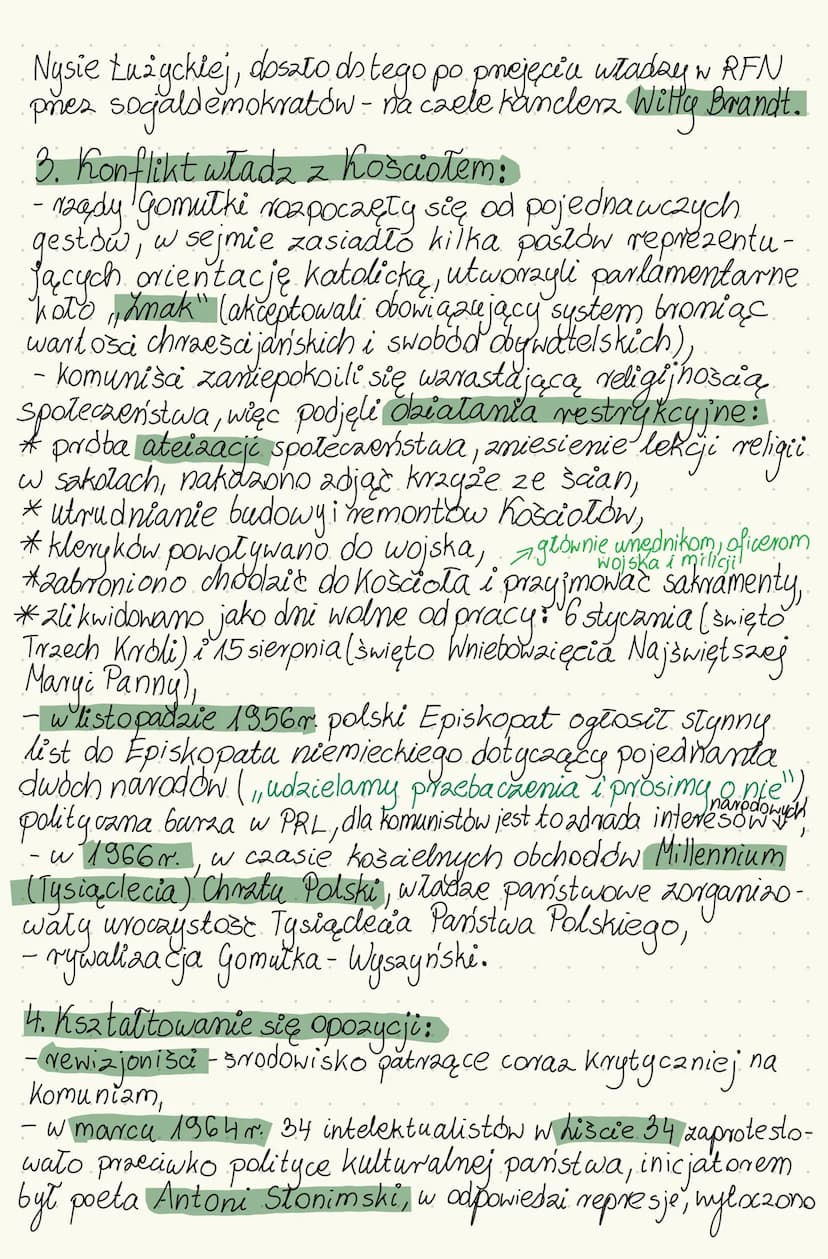 Nysie Łużyckiej, doszło do tego po przejęciu władzy w RFN
przez socjaldemokratów - na czele kanclerz Willy Brandt.
3. Konflikt władz z Kościołem:
- rządy Gomułki rozpoczęły się od pojednawczych
gestów, w sejmie zasiadło kilka posłów reprezentu-
jących orientację katolicką, utworzyli parlamentarne
koło „Znak" (akceptowali obowiązujący system broniąc
wartości chrześcijańskich i swobód obywatelskich),
- komuniści zaniepokoili się wzrastającą religijnością
społeczeństwa, więc podjęli działania restrykcyjne:
* próba ateizacji społeczeństwa, zniesienie lekcji religii
w szkołach, nakazono zdjąć krzyże ze ścian,
* utrudnianie budowy i remontów Kościołów,
* kleryków powoływano do wojska, → głównie urzędnikom, oficerom
wojska i milicji
* zabroniono chodzić do Kościoła i przyjmować sakramenty,
* zlikwidowano jako dni wolne od pracy: 6 stycznia (święto
Trzech Króli) i 15 sierpnia (święto Wniebowzięcia Najświętszej
Maryi Panny),
- w listopadzie 1956r. polski Episkopat ogłosił słynny
list do Episkopatu niemieckiego dotyczący pojednania
dwóch narodów („udzielamy przebaczenia i prosimy o nie")
polityczna burza w PRL, dla komunistów jest to zdrada interesów narodowych,
- w 1966r., w czasie kościelnych obchodów Millennium
(Tysiąclecia) Chrztu Polski, władze państwowe zorganizo-
wały uroczystość Tysiąclecia Państwa Polskiego,
- rywalizacja Gomułka - Wyszyński.
4. Kształtowanie się opozycji:
- rewizjoniści - środowisko patrzące coraz krytyczniej na
komunizm,
- w marcu 1964r. 34 intelektualistów w Liście 34 zaprotesto-
wało przeciwko polityce kulturalnej państwa, inicjatorem
był poeta Antoni Słonimski, w odpowiedzi represje, wytoczono